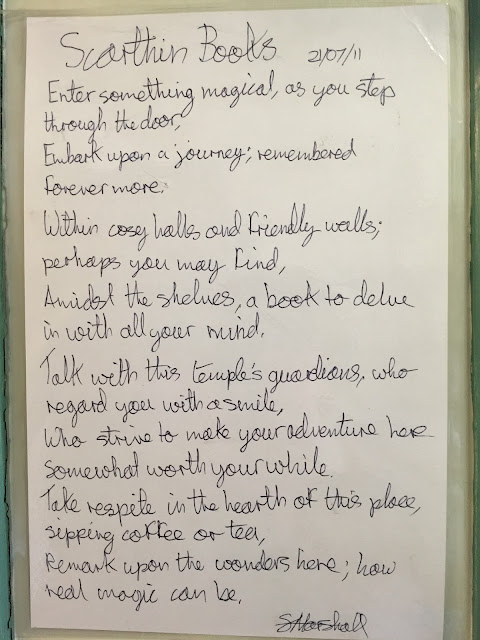 Scarthin Books 21/07/11
Enter something magical, as you step
through the door,
Embark upon a journey; remembered
forever more.
Within cosy halls and friendly walls;
perhaps you may find,
Amidst the shelves, a book to delve
in with all your mind.
Talk with this temple's guardians, who
regard you with a smile,
Who strive to make your adventure here
somewhat worth your while.
Take respite in the hearth of this place,
sipping coffee or tea,
Remark upon the wonders here; how
real magic can be.
S Marshall